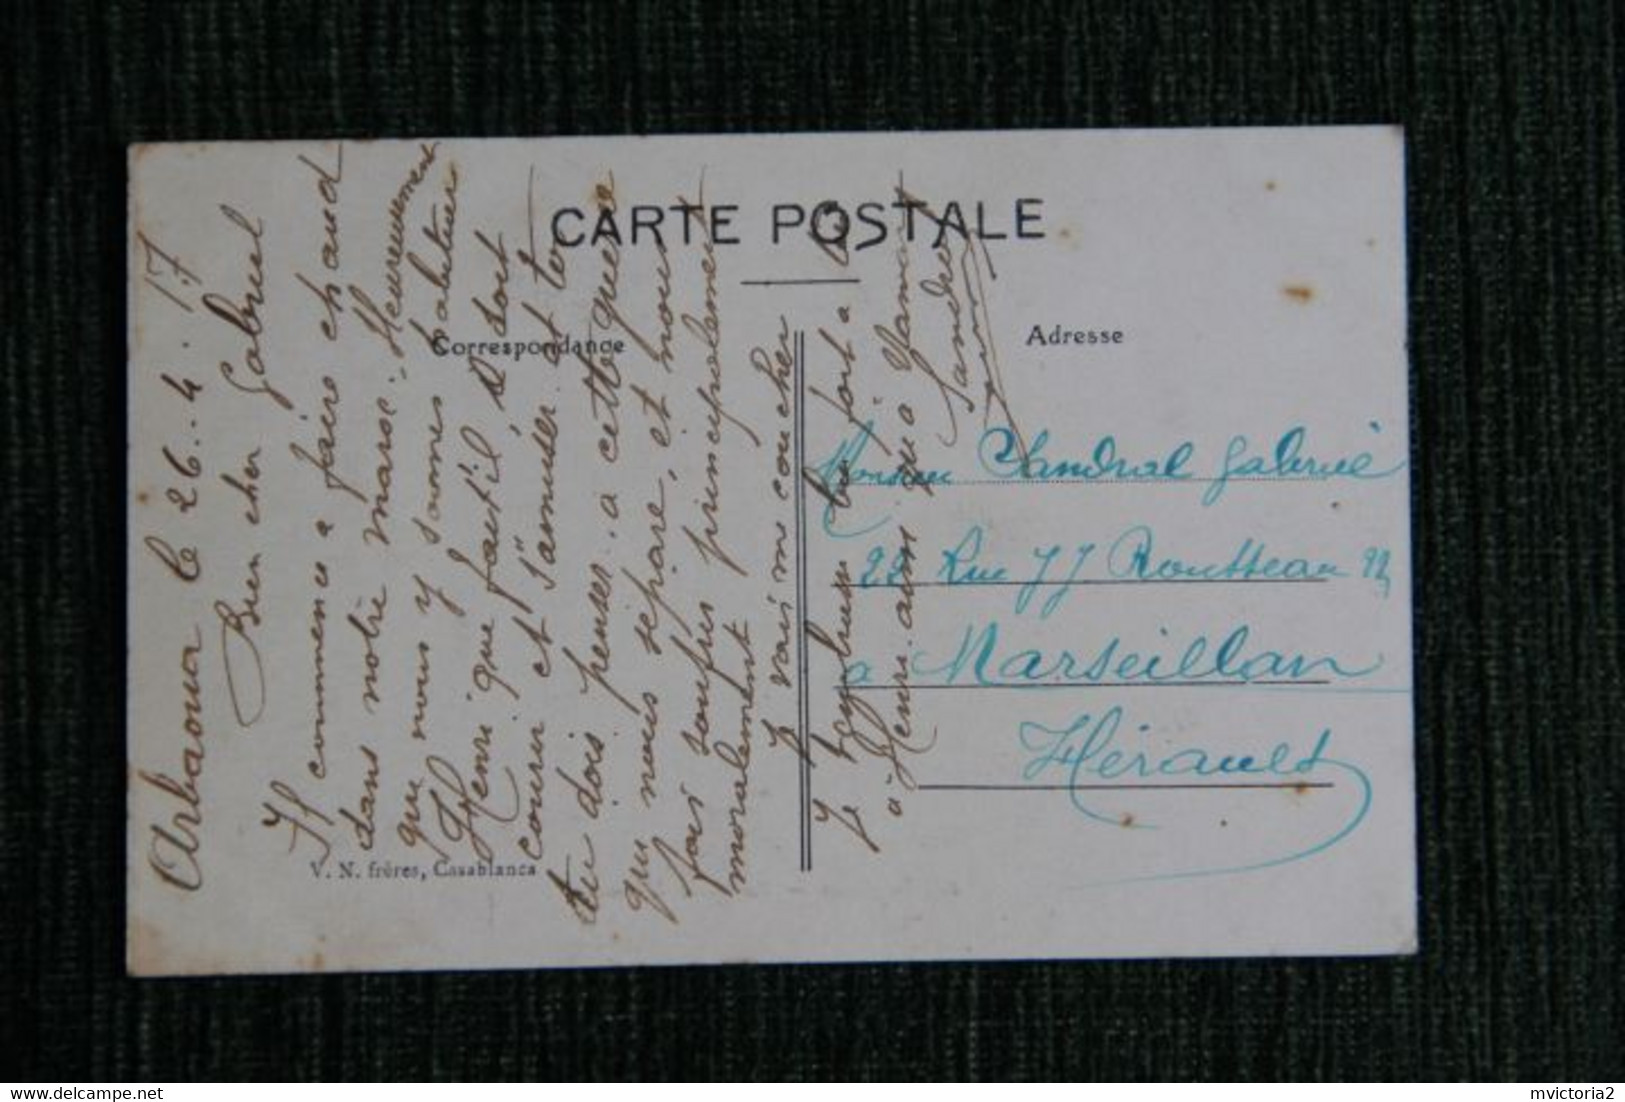 CARTE POSTALE
Correspondance
Adresse
Arbaoua le 26..4.17
Bien cher Gabriel
Il commence a faire chaud
dans notre maroc. Heureusement
que nous y sommes habituer
Henri que fait il, Il doit
courir et s'amuser. et toi
tu dois penser. a cette guerre
qui nous sépare, et nous
fais souffrir principalement
moralement
Je vais me coucher
Je
fort a
à
Monsieur Chandral Gabriel
22 Rue JJ Rousseau 22
a Marseillan
Hérault
V. N. frères, Casablanca
mvictoria2